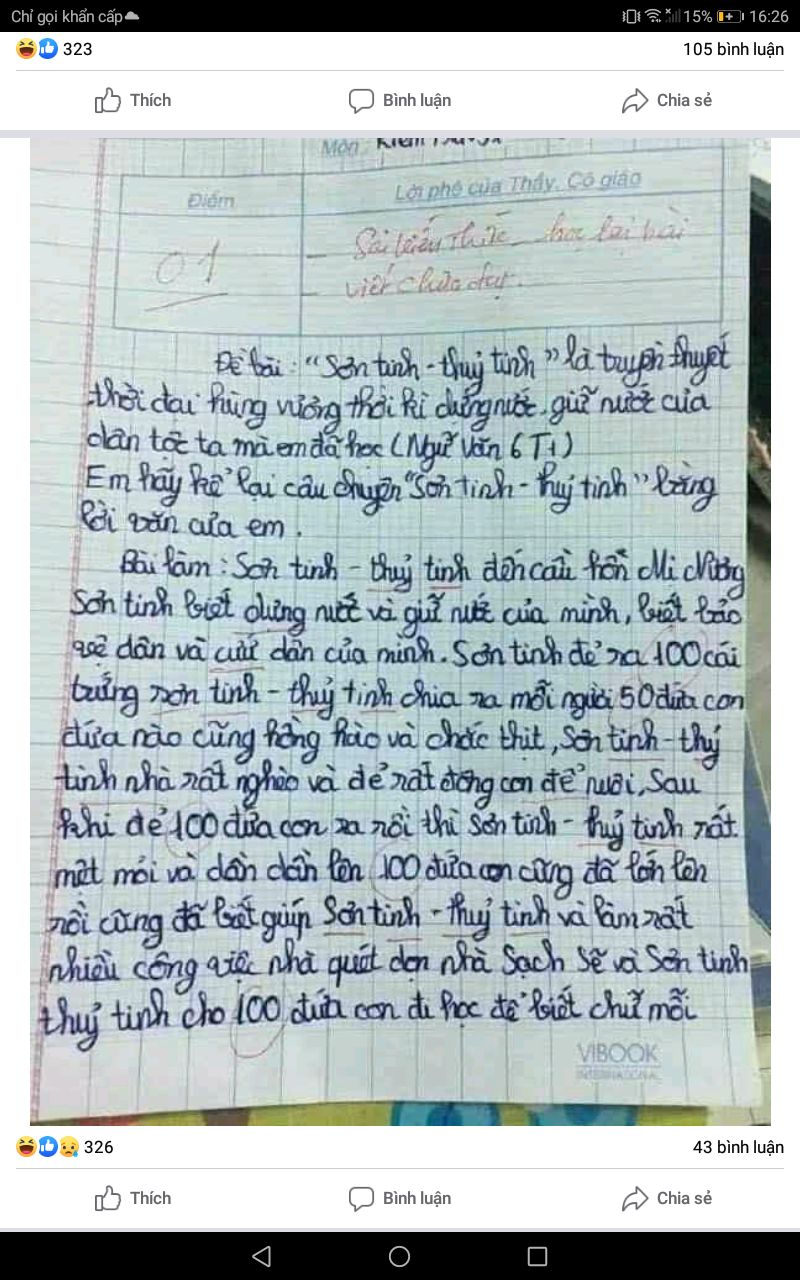 Chỉ gọi khẩn cấp 15% 16:26
323 105 bình luận
Thích Bình luận Chia sẻ
Môn:
Điểm Lời phê của Thầy, Cô giáo
01 - Sai kiến thức - học lại bài
- viết chưa đạt.
Đề bài: "Sơn tinh - thuỷ tinh" là truyền thuyết
thời đại hùng vương thời kì dựng nước, giữ nước của
dân tộc ta mà em đã học (Ngữ Văn 6 T1)
Em hãy kể lại câu chuyện "Sơn tinh - thuỷ tinh" bằng
lời văn của em.
Bài làm: Sơn tinh - thuỷ tinh đến cầu hôn Mi Nương
Sơn tinh biết dựng nước và giữ nước của mình, biết bảo
vệ dân và cứu dân của mình. Sơn tinh đẻ ra 100 cái
trứng sơn tinh - thuỷ tinh chia ra mỗi người 50 đứa con
đứa nào cũng hồng hào và chắc thịt, Sơn tinh - thuỷ
tinh nhà rất nghèo và đẻ rất đông con để nuôi, Sau
khi đẻ 100 đứa con ra rồi thì Sơn tinh - thuỷ tinh rất
mệt mỏi và dần dần lên 100 đứa con cũng đã lớn lên
rồi cũng đã biết giúp Sơn tinh - thuỷ tinh và làm rất
nhiều công việc nhà quét dọn nhà Sạch Sẽ và Sơn tinh
thuỷ tinh cho 100 đứa con đi học để biết chữ mỗi
VIBOOK
INTERNATIONAL
326 43 bình luận
Thích Bình luận Chia sẻ